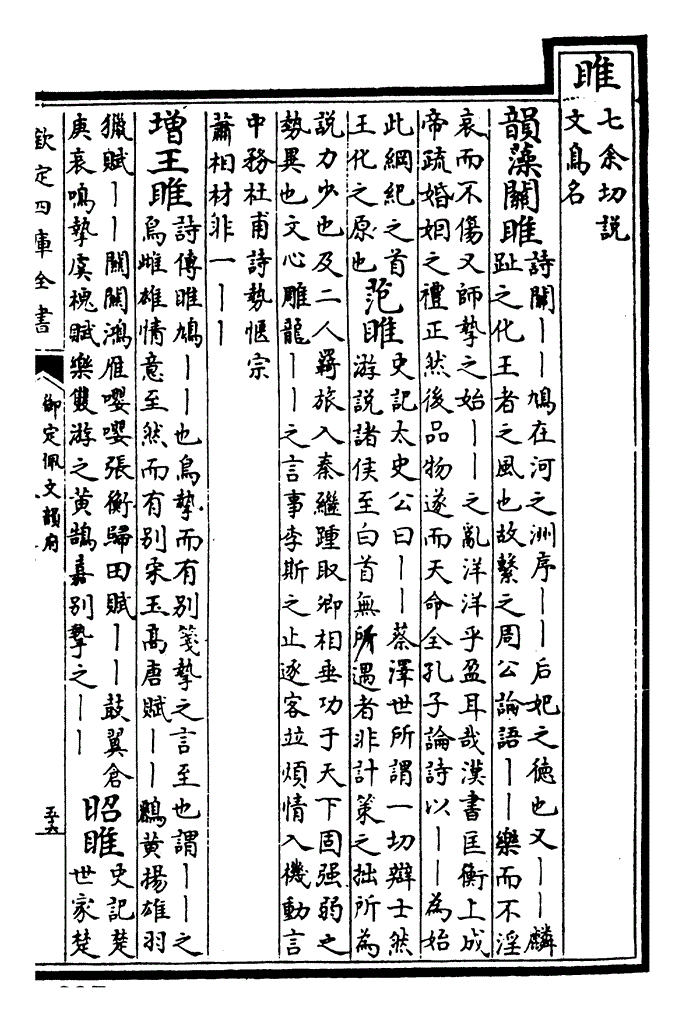 雎
七余切説
文鳥名
韻藻關雎
詩關丨丨鳩在河之洲序丨丨后妃之德也又丨丨麟
趾之化王者之風也故繫之周公論語丨丨樂而不淫
哀而不傷又師摯之始丨丨之亂洋洋乎盈耳哉漢書匡衡上成
帝疏婚姻之禮正然後品物遂而天命全孔子論詩以丨丨為始
此綱紀之首
王化之原也
范雎
史記太史公曰丨丨蔡澤世所謂一切辯士然
游說諸侯至白首無所遇者非計策之拙所為
說力少也及二人羇旅入秦繼踵取卿相垂功于天下固强弱之
勢異也文心雕龍丨丨之言事李斯之止逐客竝煩情入機動言
中務杜甫詩勢愜宗
蕭相材非一丨丨
增王雎
詩傳雎鳩丨丨也鳥摯而有别箋摯之言至也謂丨丨之
鳥雌雄情意至然而有别宋玉高唐賦丨丨鸝黄揚雄羽
獵賦丨丨關關鴻雁嚶嚶張衡歸田賦丨丨鼓翼倉
庚哀鳴摯虞槐賦樂雙游之黄鵠嘉别摯之丨丨
昭雎
史記楚
世家楚
欽定四庫全書
御定佩文韻府
五十六